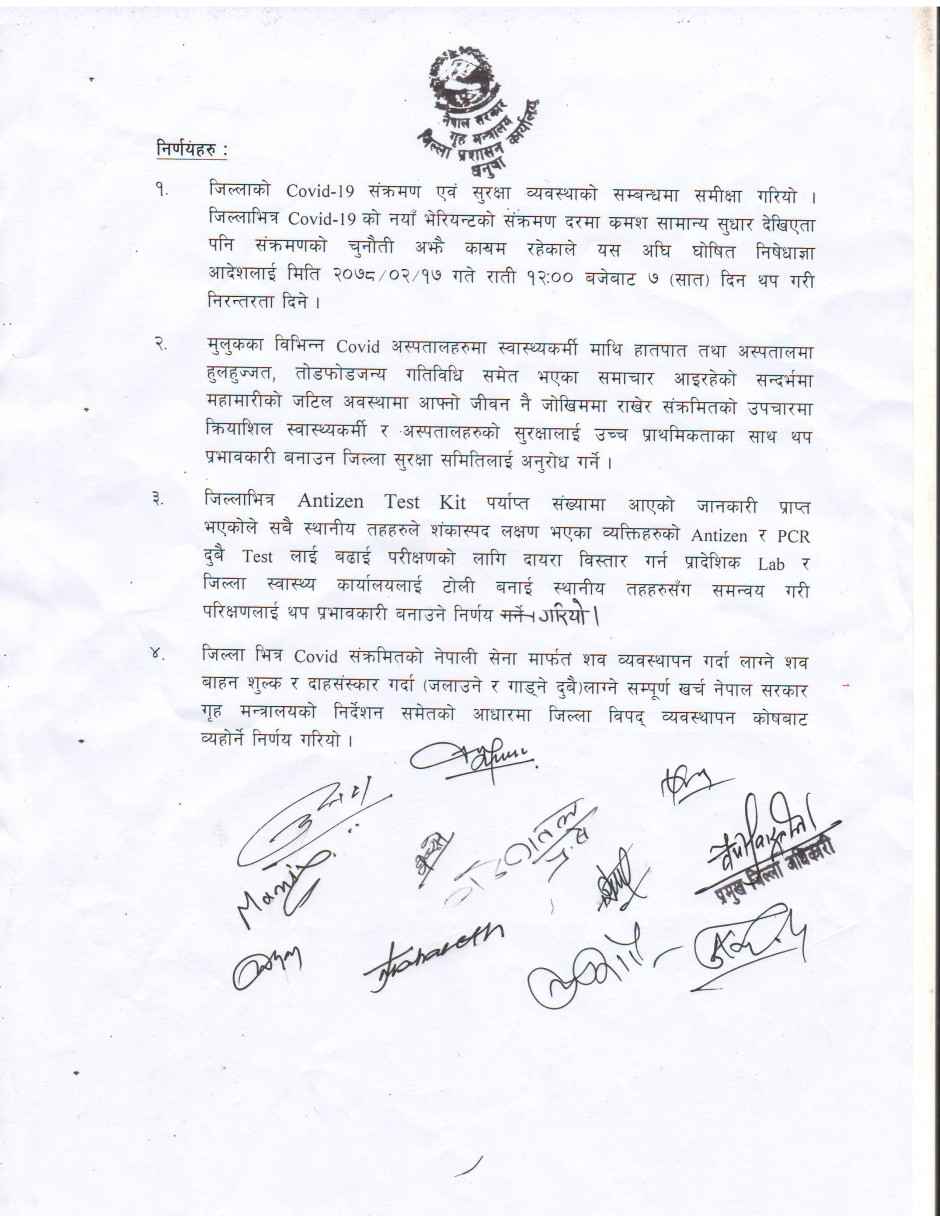 नेपाल सरकार
गृह मन्त्रालय
जिल्ला प्रशासन कार्यालय
धनुषा
निर्णयहरु :
१. जिल्लाको Covid-19 संक्रमण एवं सुरक्षा व्यवस्थाको सम्बन्धमा समीक्षा गरियो ।
जिल्लाभित्र Covid-19 को नयाँ भेरियन्टको संक्रमण दरमा कमश सामान्य सुधार देखिएता
पनि संक्रमणको चुनौती अझै कायम रहेकाले यस अघि घोषित निषेधाज्ञा
आदेशलाई मिति २०७८/०२/१७ गते राती १२:०० बजेबाट ७ (सात) दिन थप गरी
निरन्तरता दिने ।
२. मुलुकका विभिन्न Covid अस्पतालहरुमा स्वास्थ्यकर्मी माथि हातपात तथा अस्पतालमा
हुलहुज्जत, तोडफोडजन्य गतिविधि समेत भएका समाचार आइरहेको सन्दर्भमा
महामारीको जटिल अवस्थामा आफ्नो जीवन नै जोखिममा राखेर संक्रमितको उपचारमा
क्रियाशिल स्वास्थ्यकर्मी र अस्पतालहरुको सुरक्षालाई उच्च प्राथमिकताका साथ थप
प्रभावकारी बनाउन जिल्ला सुरक्षा समितिलाई अनुरोध गर्ने ।
३. जिल्लाभित्र Antizen Test Kit पर्याप्त संख्यामा आएको जानकारी प्राप्त
भएकोले सबै स्थानीय तहहरुले शंकास्पद लक्षण भएका व्यक्तिहरुको Antizen र PCR
दुबै Test लाई बढाई परीक्षणको लागि दायरा विस्तार गर्न प्रादेशिक Lab र
जिल्ला स्वास्थ्य कार्यालयलाई टोली बनाई स्थानीय तहहरुसँग समन्वय गरी
परिक्षणलाई थप प्रभावकारी बनाउने निर्णय गर्ने । गरियो ।
४. जिल्ला भित्र Covid संक्रमितको नेपाली सेना मार्फत शव व्यवस्थापन गर्दा लाग्ने शव
बाहन शुल्क र दाहसंस्कार गर्दा (जलाउने र गाड्ने दुबै)लाग्ने सम्पूर्ण खर्च नेपाल सरकार
गृह मन्त्रालयको निर्देशन समेतको आधारमा जिल्ला विपद् व्यवस्थापन कोषबाट
व्यहोर्ने निर्णय गरियो ।
प्रमुख जिल्ला अधिकारी